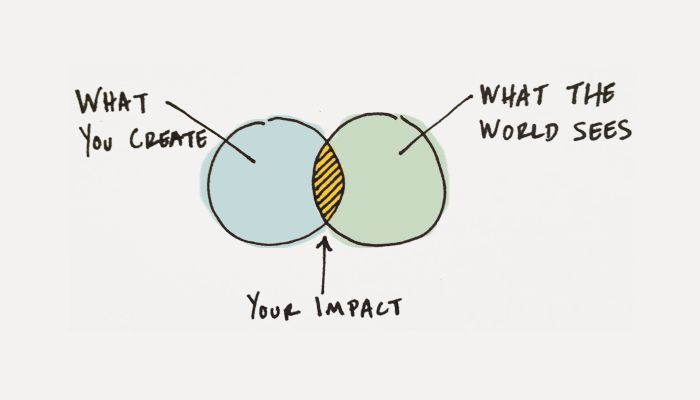 WHAT
YOU CREATE
WHAT THE
WORLD SEES
YOUR IMPACT